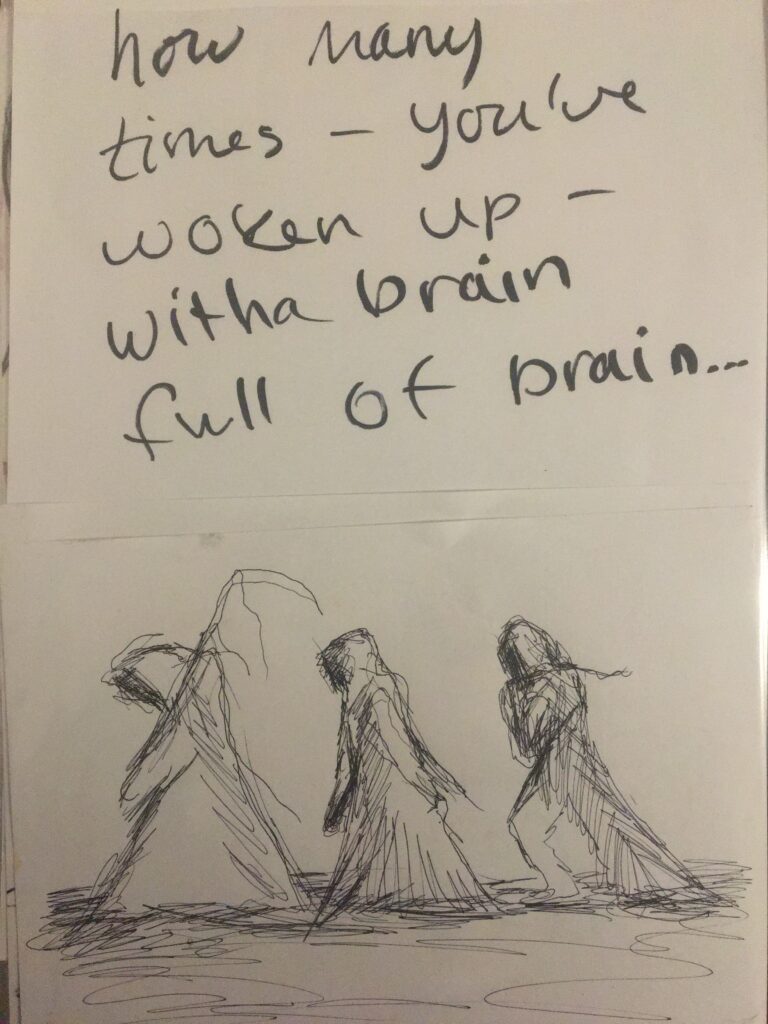 how many
times – you've
woken up –
witha brain
full of brain...